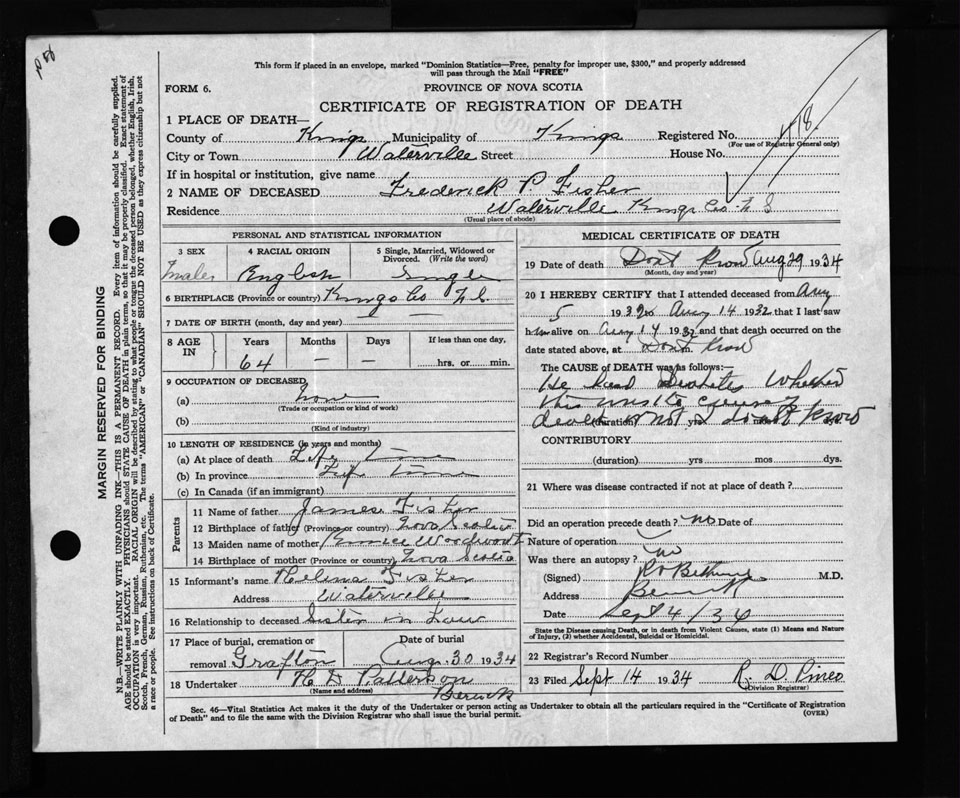 This form if placed in an envelope, marked "Dominion Statistics—Free, penalty for improper use, $300," and properly addressed
will pass through the Mail "FREE"
FORM 6.
PROVINCE OF NOVA SCOTIA
CERTIFICATE OF REGISTRATION OF DEATH
1 PLACE OF DEATH—
County of Kings Municipality of Kings Registered No. 418
(For use of Registrar General only)
City or Town Waterville Street House No.
If in hospital or institution, give name
2 NAME OF DECEASED Frederick P Fisher
Residence Waterville Kings Co N S
(Usual place of abode)
PERSONAL AND STATISTICAL INFORMATION
3 SEX 4 RACIAL ORIGIN 5 Single, Married, Widowed or Divorced. (Write the word)
Male English Single
6 BIRTHPLACE (Province or country) Kings Co N.S.
7 DATE OF BIRTH (month, day and year) —
8 AGE IN Years Months Days If less than one day,
64 — — hrs. or min.
9 OCCUPATION OF DECEASED
(a) None
(Trade or occupation or kind of work)
(b)
(Kind of industry)
10 LENGTH OF RESIDENCE (in years and months)
(a) At place of death Life time
(b) In province Life time
(c) In Canada (if an immigrant)
Parents
11 Name of father James Fisher
12 Birthplace of father (Province or country) Nova Scotia
13 Maiden name of mother Woodworth
14 Birthplace of mother (Province or country) Nova Scotia
15 Informant's name Helena Fisher
Address Waterville
16 Relationship to deceased Sister in Law
17 Place of burial, cremation or removal Grafton Date of burial Aug. 30 1934
18 Undertaker H D Patterson
(Name and address) Berwick
MEDICAL CERTIFICATE OF DEATH
19 Date of death Dont Know Aug 29 1934
(Month, day and year)
20 I HEREBY CERTIFY that I attended deceased from Aug
5 1932 to Aug 14 1932 that I last saw
him alive on Aug 14 1932 and that death occurred on
date stated above, at Dont Know
The CAUSE OF DEATH was as follows:—
He had Diabetes Whether
this was the cause of
death or not I don't know
(duration) yrs mos dys.
CONTRIBUTORY
(duration) yrs mos dys.
21 Where was disease contracted if not at place of death?
Did an operation precede death? no Date of
Nature of operation
Was there an autopsy? no
(Signed) M.D.
Address Berwick
Date Sept 4/34
State the Disease causing Death, or in death from Violent Causes, state (1) Means and Nature
of Injury, (2) whether Accidental, Suicidal or Homicidal.
22 Registrar's Record Number
23 Filed Sept 14 1934 R. D. Pineo
(Division Registrar)
Sec. 46—Vital Statistics Act makes it the duty of the Undertaker or person acting as Undertaker to obtain all the particulars required in the "Certificate of Registration
of Death" and to file the same with the Division Registrar who shall issue the burial permit.
(OVER)
MARGIN RESERVED FOR BINDING
N.B.—WRITE PLAINLY WITH UNFADING INK—THIS IS A PERMANENT RECORD. Every item of information should be carefully supplied.
AGE should be stated EXACTLY. PHYSICIANS should STATE CAUSE OF DEATH in plain terms, so that it may be properly classified. Exact statement of
OCCUPATION is very important. RACIAL ORIGIN will be described by stating to what people or tongue the deceased person belonged, whether English, Irish,
Scotch, French, German, Russian, Ruthenian, etc. The terms "AMERICAN" or "CANADIAN" SHOULD NOT BE USED as they express citizenship but not
a race or people. See instructions on back of Certificate.